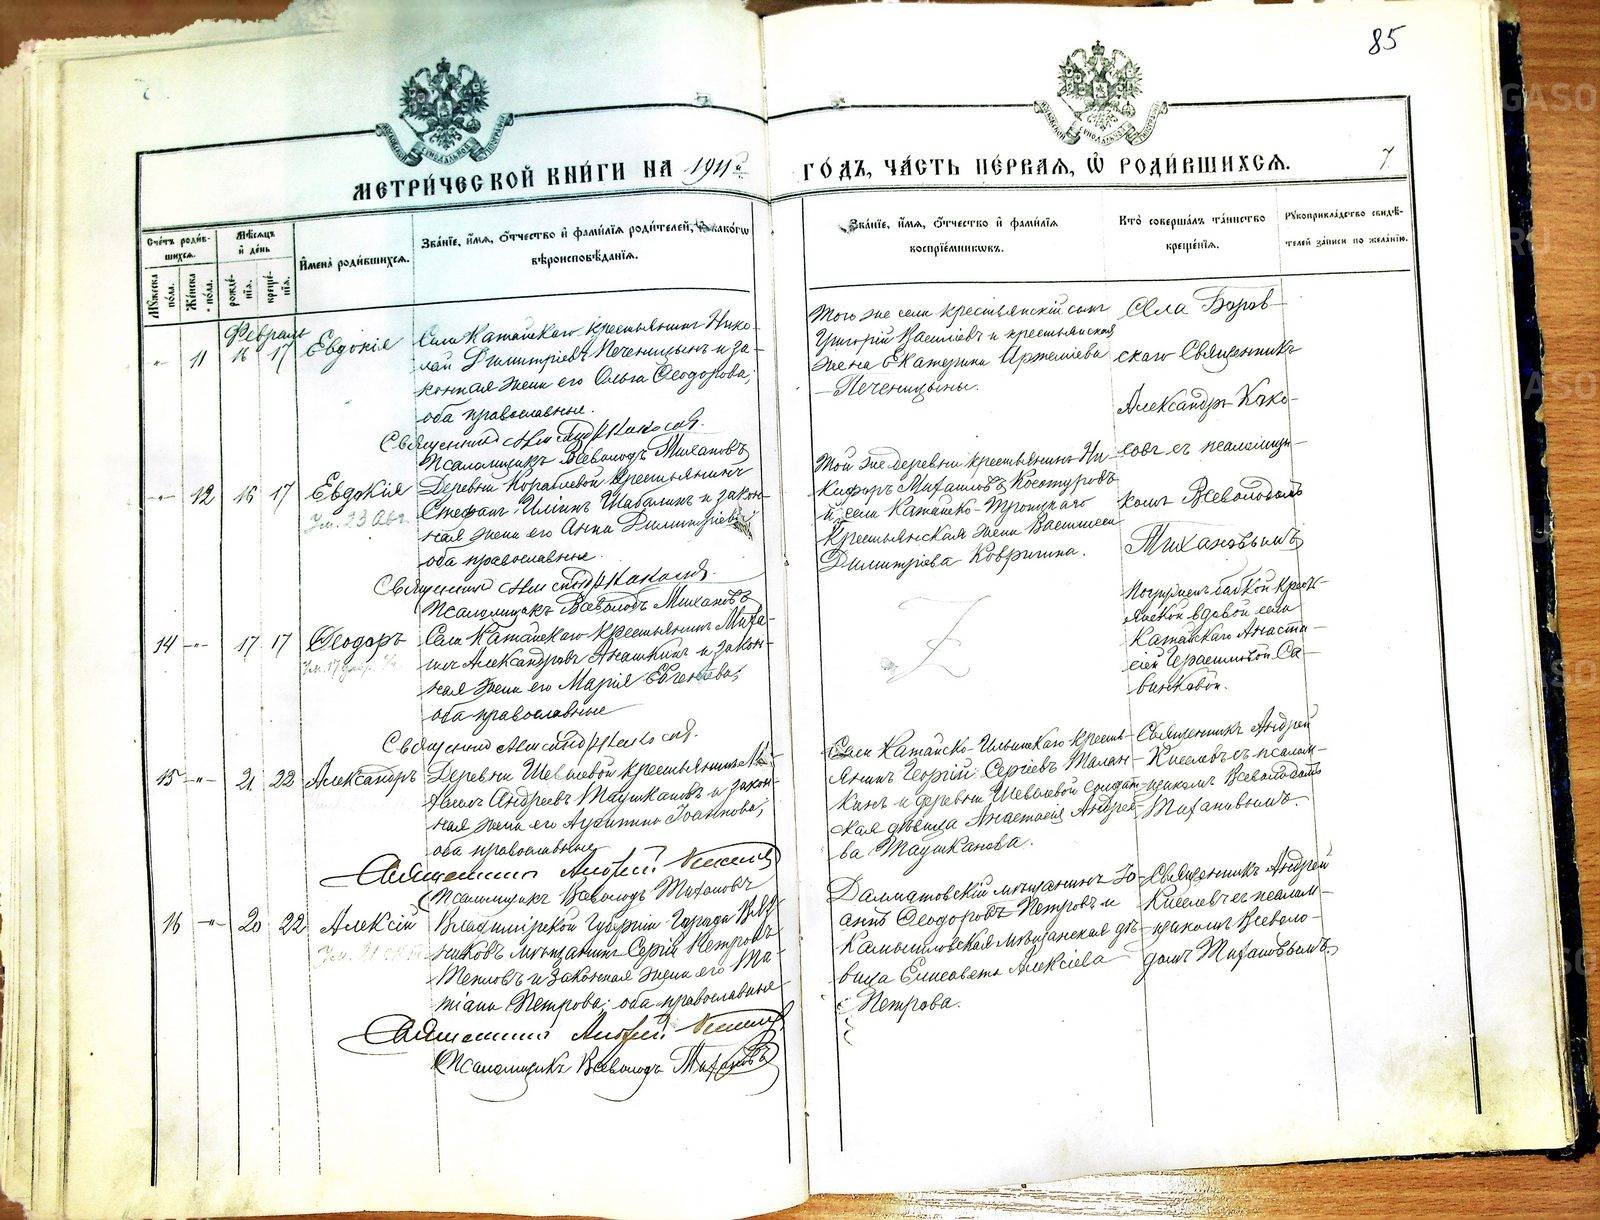 85
МЕТРИ́ЧЕСКОЙ КНИ́ГИ НА 1911й
ГО́ДЪ, ЧА́СТЬ ПЕ́РВАЯ, Ѡ҆ РОДИ́ВШИХСѦ.
7
Сче́тъ роди́в-
шихсѧ.
Мꙋ́жеска по́ла.
Же́нска по́ла.
Мѣ́сѧцъ
и҆ де́нь
рожде́-
нїѧ.
креще́-
нїѧ.
И҆мена̀ роди́вшихсѧ.
Зва́нїе, и҆́мѧ, ѻ҆́тчество и҆ фами́лїѧ роди́телей, и҆ како́гѡ
вѣроисповѣ́данїѧ.
Зва́нїе, и҆́мѧ, ѻ҆́тчество и҆ фами́лїѧ
воспрїе́мникѡвъ.
Кто̀ соверша́лъ та́инство
креще́нїѧ.
Рꙋкоприкла́дство свидѣ́-
телей за́писи по жела́нїю.
Февраль
11 16 17 Евдокія
Села Катайскаго крестьянинъ Нико-
лай Димитріевъ Печеницынъ и за-
конная жена его Ольга Ѳеодорова,
оба православные.
Священникъ
Псаломщикъ Всеволодъ Тихановъ
Того же села крестьянскій сынъ
Григорій Василіевъ и крестьянская
жена Екатерина Артеміева
Печеницыны.
Села Боров-
скаго Священникъ
Александръ Како-
совъ съ псаломщи-
комъ Всеволодомъ
Тихановымъ
12 16 17 Евдокія
Ум. 23 Авг.
Деревни Кораблевой крестьянинъ
Стефанъ Иліинъ Шабалинъ и закон-
ная жена его Анна Димитріева
оба православные.
Священникъ
Псаломщикъ Всеволодъ Тихановъ
Той же деревни крестьянинъ Ни-
кифоръ Михаиловъ
и села Катайско-Троицкаго
крестьянская жена Василиса
Димитріева Ковригина.
14 17 17 Ѳеодоръ
Села Катайскаго крестьянинъ Миха-
илъ Александровъ Анашкинъ и закон-
ная жена его Марія Евгеніева,
оба православные
Священникъ
Погруженъ бабкой крест-
янской вдовой села
Катайскаго Анаста-
сіей Герасимовой Са-
винковой.
15 21 22 Александръ
Деревни Шевелевой крестьянинъ
Андреевъ Таушкановъ и закон-
ная жена его Іоаннова,
оба православные
Священникъ Андрей Киселевъ
Псаломщикъ Всеволодъ Тихановъ
Села Катайско-Ильинскаго кресть-
янинъ Георгій Сергіевъ Талан-
кинъ и деревни Шевелевой солдат-
ская дѣвица Анастасія Андрее-
ва Таушканова.
Священникъ Андрей
Киселевъ съ псалом-
щикомъ Всеволодомъ
Тихановымъ.
16 20 22 Алексій
Владимірской Губерніи Города Вяз-
никовъ мѣщанинъ Сергій Петровъ
Тепловъ и законная жена его Та-
тіана Петрова, оба православные
Священникъ Андрей Киселевъ
Псаломщикъ Всеволодъ Тихановъ
Далматовскій мѣщанинъ Іо-
аннъ Ѳеодоровъ Петровъ и
Камышловская мѣщанская дѣ-
вица Елисавета Алексіева
Петрова.
Священникъ Андрей
Киселевъ съ псалом-
щикомъ Всеволо-
домъ Тихановымъ.